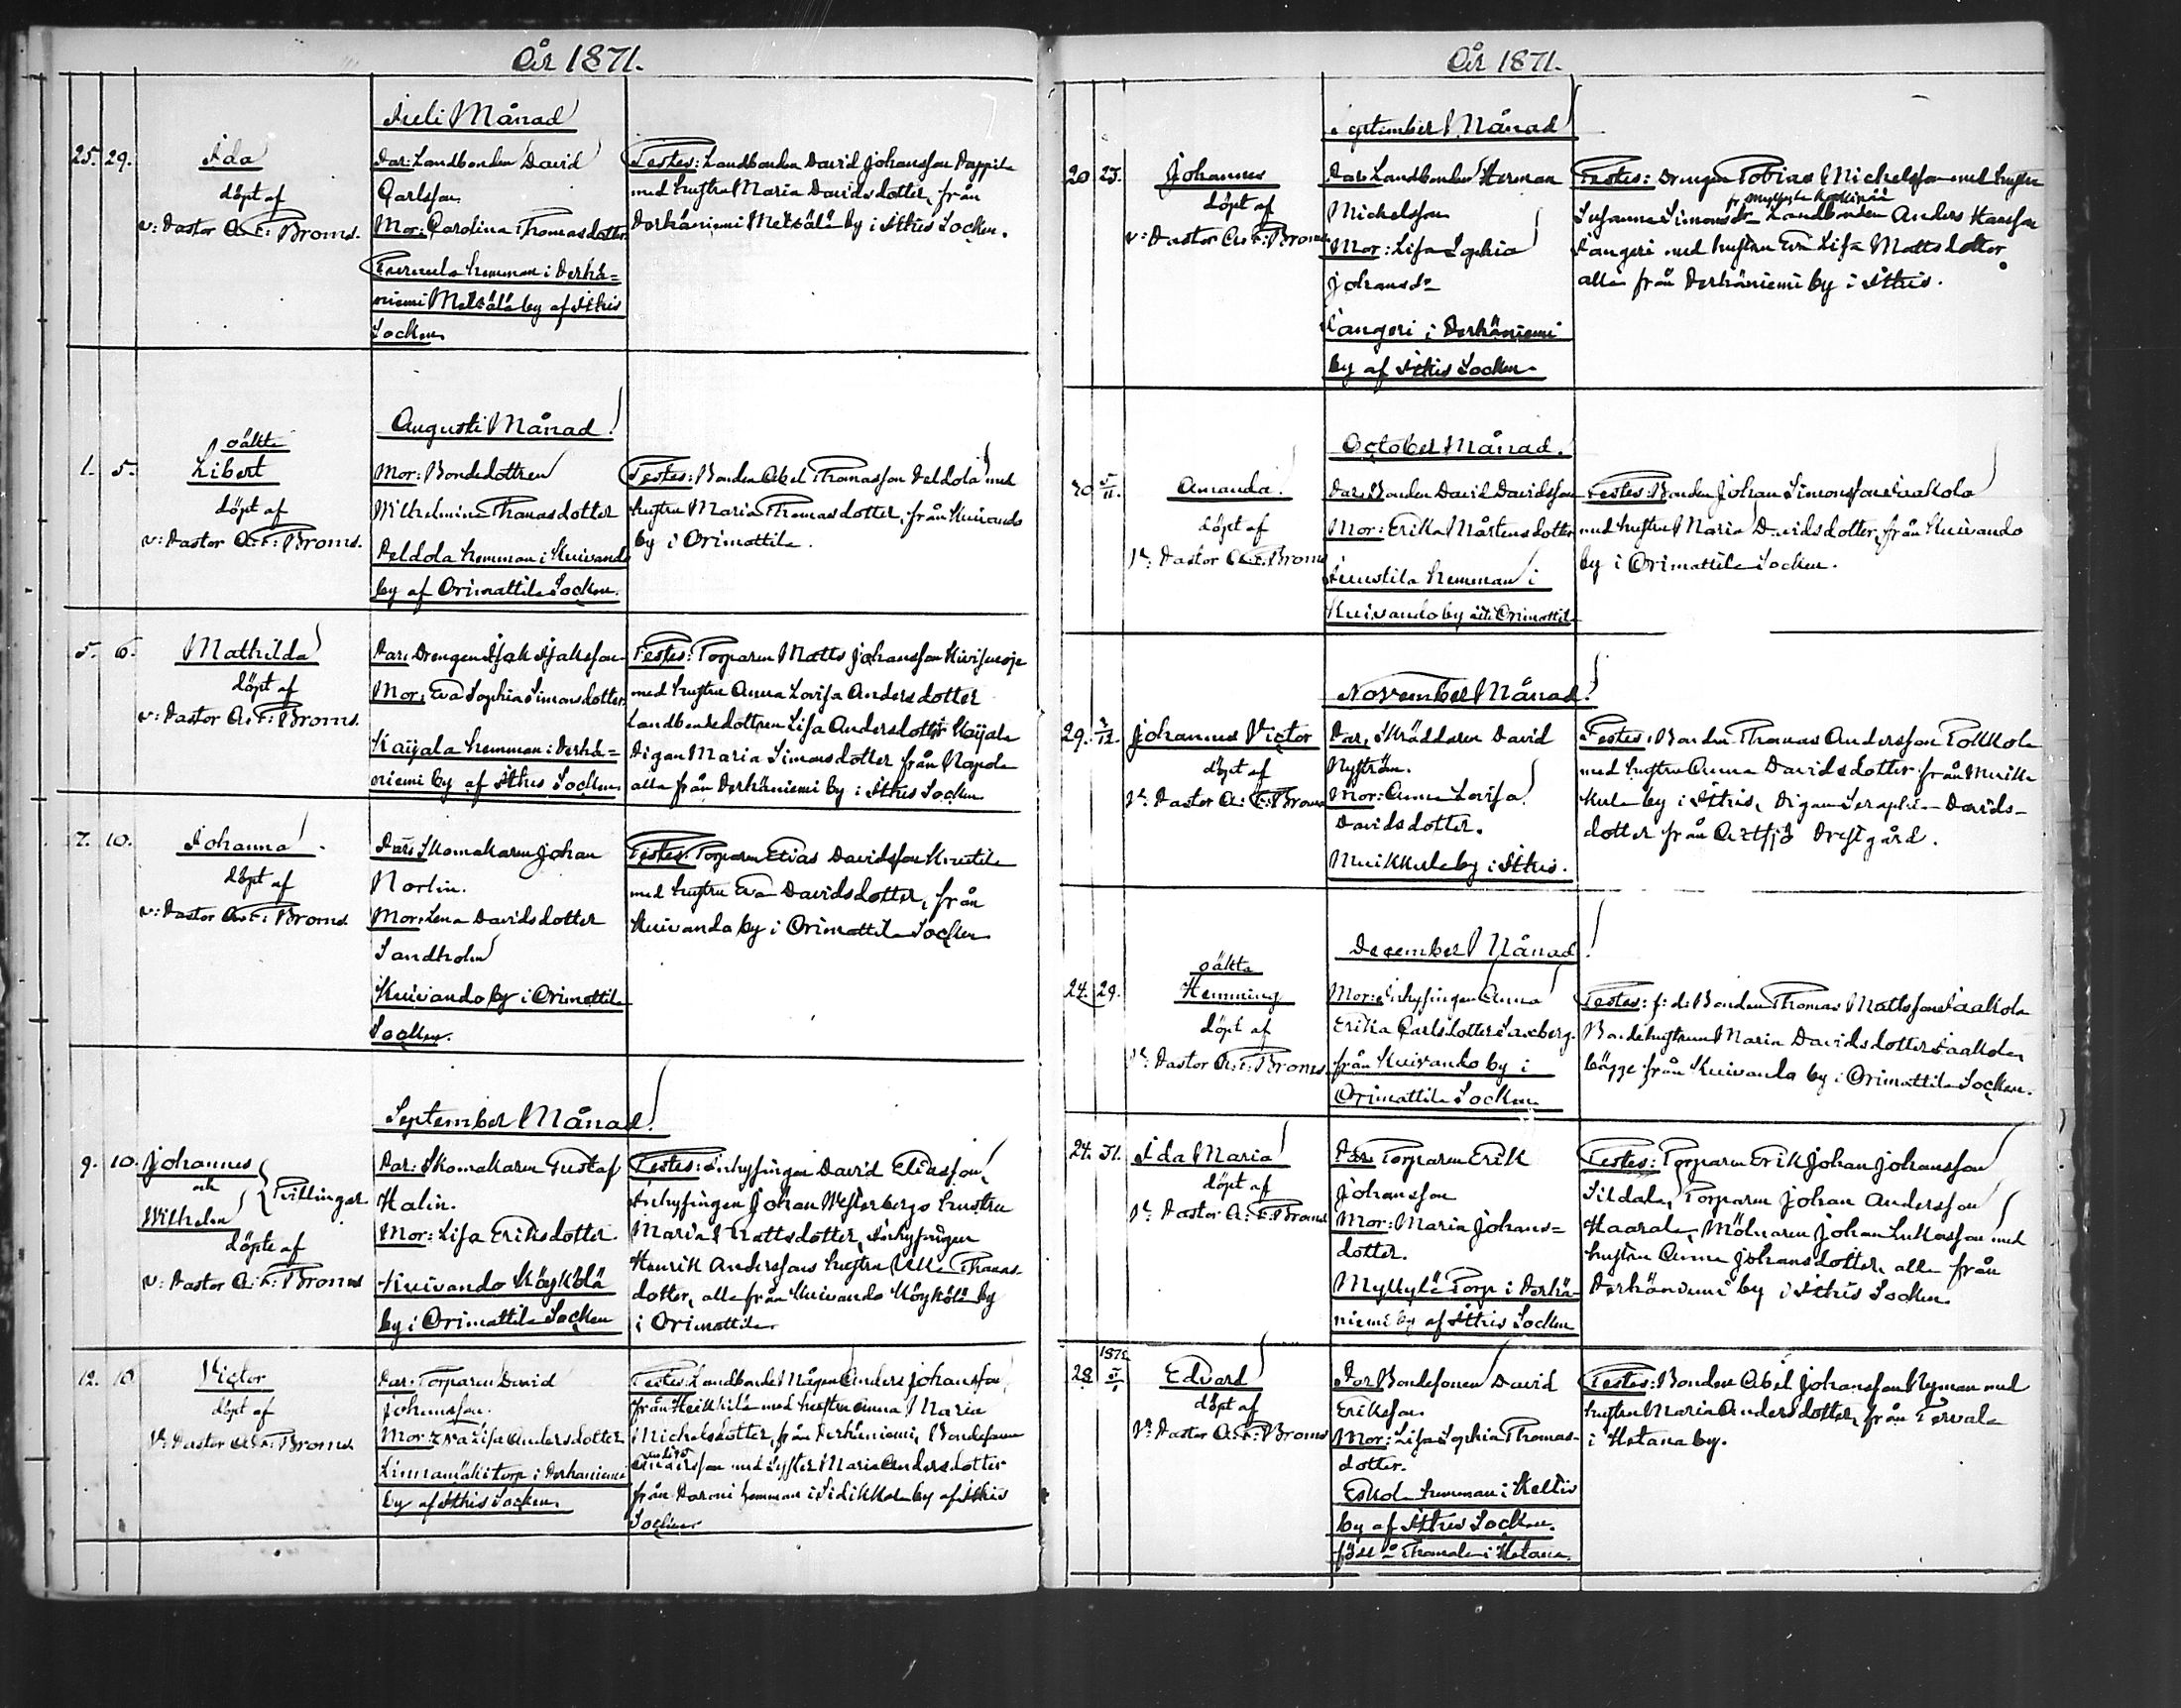 År 1871.
Juli Månad
25. 29. Ida
döpt af
v: Pastor A. F: Broms.
Par: Landbonden David
Carlsson
Mor: Carolina Thomasdotter
hemman i Perhä=
niemi Metsälä by af Ithis
Socken
Testes: Landbonden David Johansson Pappila
med hustru Maria Davidsdotter, från
Perhäniemi Metsälä by i Ithis Socken.
Augusti Månad
1. 5. oäkta
Libert
döpt af
v: Pastor A. F: Broms.
Mor: Bondedottren
Wilhelmina Thomasdotter
Peldola hemman i Kuivando
by af Orimattila Socken.
Testes: Bonden Abel Thomasson Peldola med
hustru Maria Thomasdotter, från Kuivando
by i Orimattila.
5. 6. Mathilda
döpt af
v: Pastor A. F: Broms.
Par: Drengen Isak Isaksson
Mor: Eva Sophia Simonsdotter
Kaijala hemman i Perhä=
niemi by af Ithis Socken
Testes: Torparen Matts Johansson
med hustru Anna Lovisa Andersdotter
Landbondedottren Lisa Andersdotter Kaijala
Pigan Maria Simonsdotter från Napola
alla från Perhäniemi by i Ithis Socken
7. 10. Johanna
döpt af
v: Pastor A. F: Broms
Par: Skomakaren Johan
Norlin.
Mor: Lena Davidsdotter
Sandholm
Kuivando by i Orimattila
Socken.
Testes: Torparen Elias Davidsson
med hustru Eva Davidsdotter, från
Kuivando by i Orimattila Socken
September Månad
9. 10. Johannes
och
Wilhelm } Tvillingar
döpte af
v: Pastor A. F: Broms
Par: Skomakaren Gustaf
Halin.
Mor: Lisa Eriksdotter.
Kuivando Köykölä
by i Orimattila Socken
Testes: Inhysingen David Eliasson,
Inhysingen Johan Westerbergs hustru
Maria Mattsdotter, Inhysingen
Henrik Anderssons hustru Ulla Thomas-
dotter, alla från Kuivando Köykölä by
i Orimattila
12. 10 Victor
döpt af
V: Pastor A. F: Broms
Par: Torparen David
Johansson.
Mor: Eva Lisa Andersdotter
Linnamäki torp i Perhäniemi
by af Ithis Socken.
Testes: Landbonde Mågen Anders Johansson,
från Heikkilä med hustru Anna Maria
Michelsdotter, från Perhäniemi, Bondesonen
Andersson med Syster Maria Andersdotter
från Paroni hemman i Sidikkala by af Ithis
Socken
År 1871.
September Månad
20 25. Johannes
döpt af
v: Pastor A. F: Broms
Par: Landbonden Herman
Michelsson
Mor: Lisa Sophia
Johansdr
Sangeri i Perhäniemi
by af Ithis Socken.
Testes: Drengen Tobias Michelsson med hustru
Susanna Simonsdr Landbonden Anders Hansson
Sangeri med hustru Eva Lisa Mattsdotter
alla från Perhäniemi by i Ithis.
October Månad.
30 5/11. Amanda
döpt af
V: Pastor A. F: Broms
Par: Bonden David Davidsson
Mor: Erika Mårtensdotter
Juustila hemman i
Kuivando by i Orimattila
Testes: Bonden Johan Simonsson Jaakkola
med hustru Maria Davidsdotter, från Kuivando
by i Orimattila Socken.
November Månad
29. 3/12. Johannes Victor
döpt af
V: Pastor A. F: Broms
Par: Skräddaren David
Nyström.
Mor: Anna Lovisa
Davidsdotter.
Muikkula by i Ithis.
Testes: Bonden Thomas Andersson Tolkkola
med hustru Anna Davidsdotter från Muik
kula by i Ithis, Pigan Seraphia Davids-
dotter från Artsjö Prestgård.
December Månad
24. 29. oäkta
Hemming
döpt af
V: Pastor A. F: Broms.
Mor: Inhysingen Anna
Erika Carlsdotter Saxberg.
från Kuivando by i
Orimattila Socken
Testes: f: d: Bonden Thomas Mattsson Jaakkola
Bondehustrun Maria Davidsdotter Jaakkola
bägge från Kuivando by i Orimattila Socken.
24. 31. Ida Maria
döpt af
V: Pastor A. F: Broms
Par: Torparen Erik
Johansson
Mor: Maria Johans=
dotter.
Myllylä Torp i Perhä-
niemi by af Ithis Socken
Testes: Torparen Erik Johan Johansson
Sildala, Torparen Johan Andersson
Haarala, Mölnaren Johan Lukasson med
hustru Anna Johansdotter, alla från
Perhäniemi by i Ithis Socken.
28 1872 Edvard
döpt af
V: Pastor A. F: Broms
Par: Bondesonen David
Eriksson.
Mor: Lisa Sophia Thomas-
dotter.
Eskola hemman i Keltis
by af Ithis Socken.
född å Thomala i Hetana.
Testes: Bonden Abel Johansson Nyman med
hustru Maria Andersdotter, från Tervala
i Hetana by.